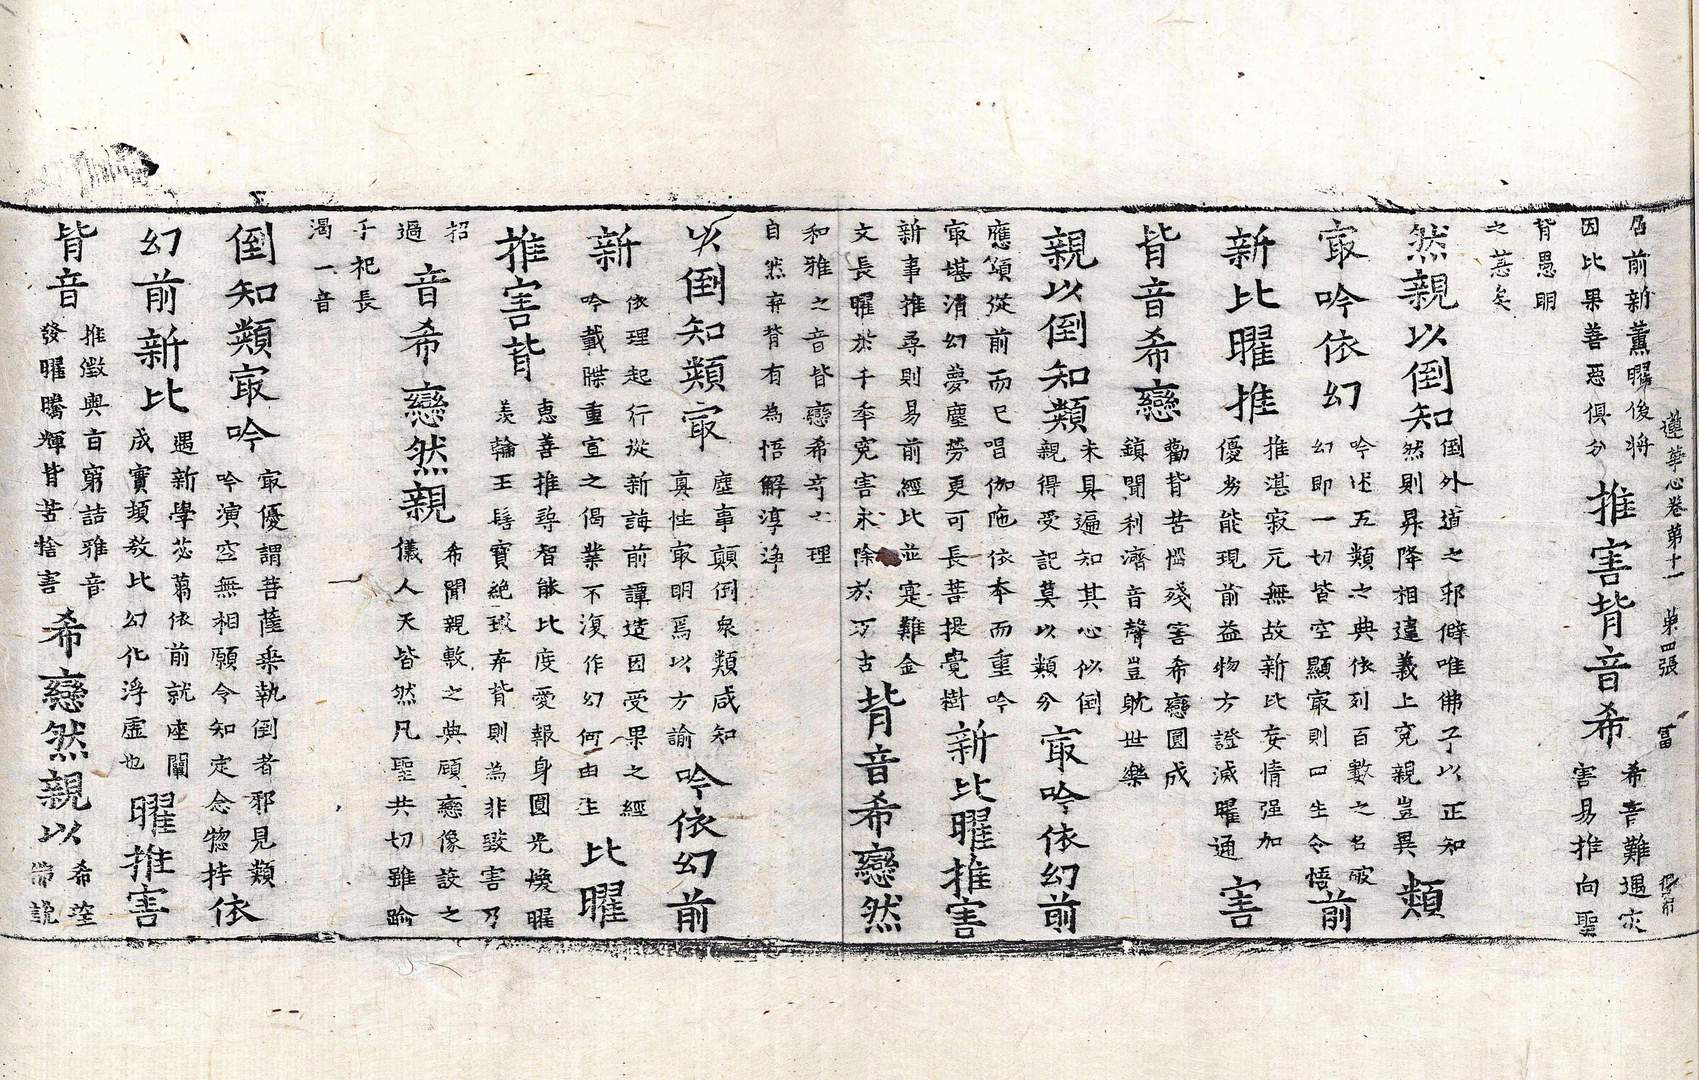 蓮華心卷第十一　第四張　富
居前新薰曜後將
因比果善惡俱分
推害背音希
希音難遇灾
害易推向聖
背愚明
之慧矣
然親以倒知
倒外道之邪僻唯佛子以正知
然則昇降相違義上究親豈異
類
㝡吟依幻
吟述五類之典依列百數之名破
幻即一切皆空顯㝡則四生令悟
前
新比曜推
推湛寂元無故新比妄情强加
優劣能現前益物方證滅曜通
害
背音希戀
勸背苦惱殘害希戀圓成
鎮聞利濟音聲豈躭世樂
親以倒知類
未具遍知其心似倒
親得受記莫以類分
㝡吟依幻前
應頌從前而已唱伽陁依本而重吟
㝡堪清幻夢塵勞更可長菩提覺樹
新比曜推害
新事推尋則易前經比並寔難金
文長曜於千秊寃害永除於万古
背音希戀然
和雅之音皆戀希竒之理
自然弃背有為悟解淳淨
以倒知類㝡
塵事顛倒衆類咸知
真性㝡明焉以方諭
吟依幻前
新
依理起行從新誨前譚造因受果之經
吟戴牒重宣之偈業不復作幻何由生
比曜
推害背
惠善推尋智能比度愛報身圓光煥曜
羨輪王髻寶絶瑕弃背則為非毀害乃
招
過
音希戀然親
希聞親敷之典願戀像設之
儀人天皆然凡聖共切雖踰
千祀長
渴一音
倒知類㝡吟
㝡優謂菩薩乘執倒者邪見類
吟演空無相願令知定念惣持
依
幻前新比
遇新學苾蒭依前就座闡
成實頻教比幻化浮虛也
曜推害
背音
推徵與旨窮詰雅音
發曜騰輝背苦捨害
希戀然親以
希望